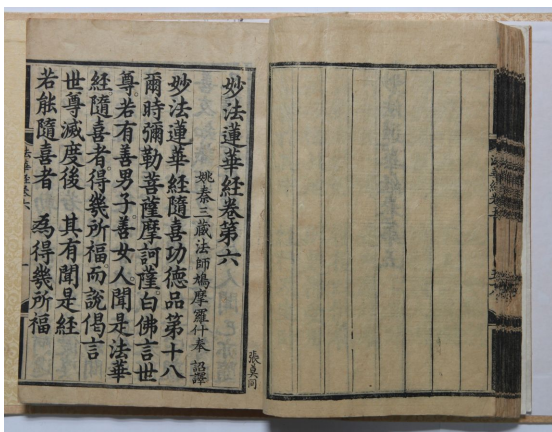 妙法蓮華經卷第六
姚秦三藏法師鳩摩羅什奉 詔譯
妙法蓮華經隨喜功德品第十八
爾時彌勒菩薩摩訶薩白佛言世
尊若有善男子善女人聞是法華
經隨喜者得幾所福而說偈言
世尊滅度後 其有聞是經
若能隨喜者 為得幾所福
法華經卷六